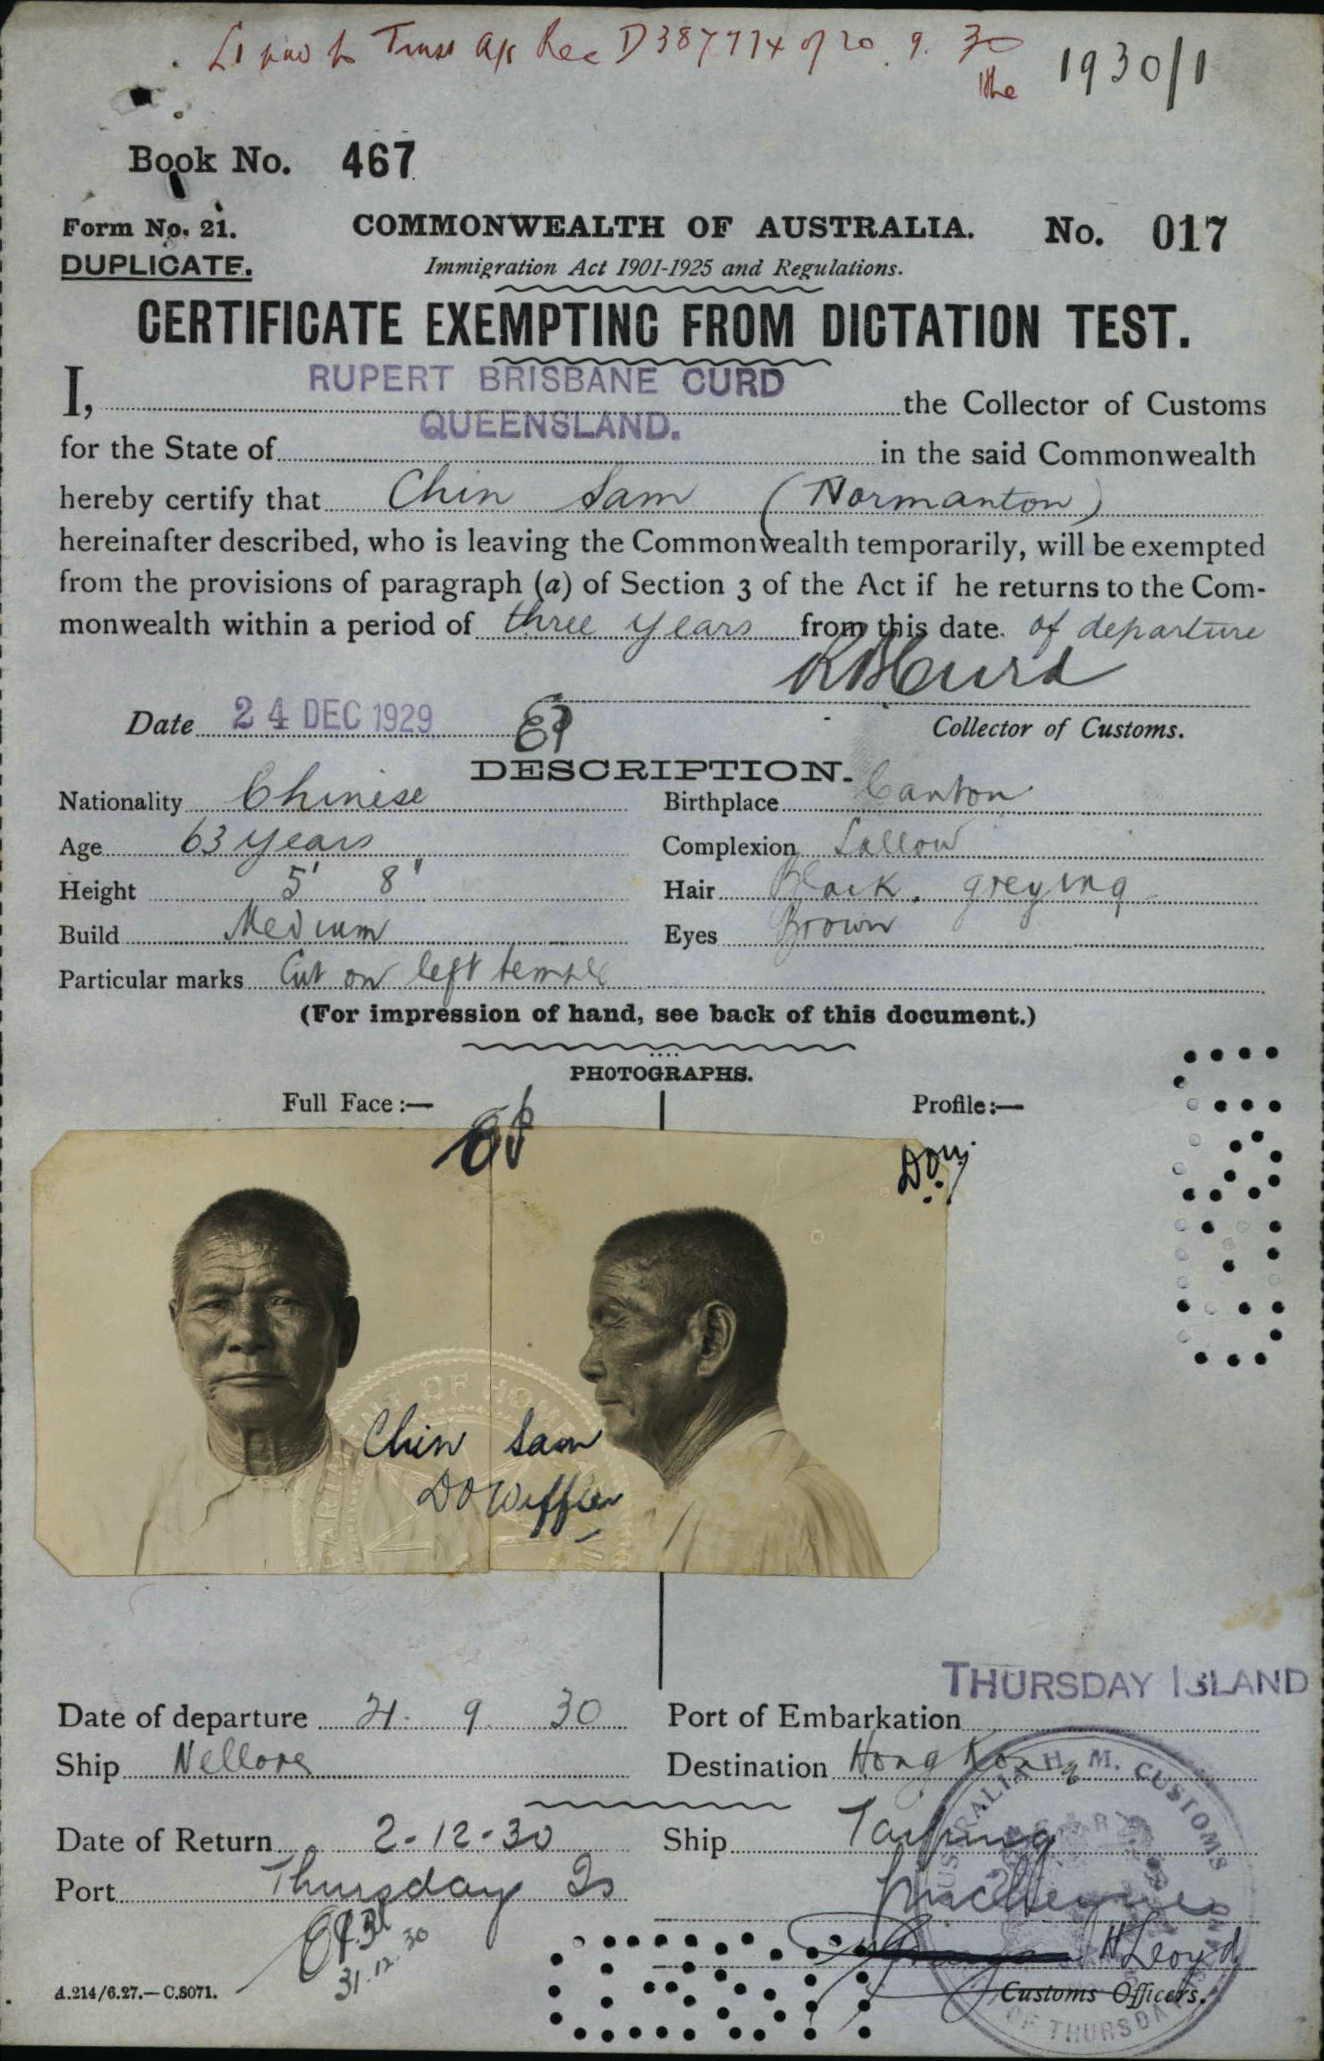 £1 paid to Trust a/c Rec D387774 of 20.9.30
1930/1
Book No. 467
Form No. 21. COMMONWEALTH OF AUSTRALIA. No. 017
DUPLICATE. Immigration Act 1901-1925 and Regulations.
CERTIFICATE EXEMPTING FROM DICTATION TEST.
I, RUPERT BRISBANE CURD the Collector of Customs
for the State of QUEENSLAND. in the said Commonwealth
hereby certify that Chin Sam (Normanton)
hereinafter described, who is leaving the Commonwealth temporarily, will be exempted
from the provisions of paragraph (a) of Section 3 of the Act if he returns to the Com-
monwealth within a period of three years from this date. of departure
RBCurd
Date 24 DEC 1929 Collector of Customs.
DESCRIPTION.
Nationality Chinese Birthplace Canton
Age 63 years Complexion Sallow
Height 5' 8" Hair Black, greying
Build Medium Eyes Brown
Particular marks Cut on left temple
(For impression of hand, see back of this document.)
PHOTOGRAPHS.
Full Face:— Profile:—
Chin Sam
THURSDAY ISLAND
Date of departure 21. 9. 30 Port of Embarkation
Ship Nellore Destination Hong Kong
Date of Return 2-12-30 Ship Taiping
Port Thursday Is
31.12.30
H Lloyd
A.214/6.27.—C.8071. Customs Officers.